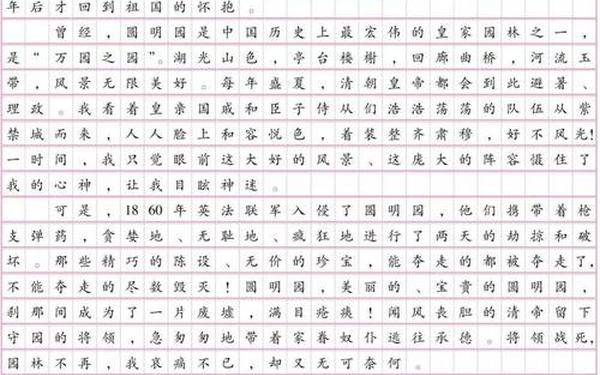 年后才回到祖国的怀抱。
曾经，圆明园是中国历史上最宏伟的皇家园林之一，
是“万园之园”。湖光山色，亭台楼榭，回廊曲桥，河流玉
带，风景无限美好。每年盛夏，清朝皇帝都会到此避暑、
理政。我看着皇亲国戚和臣子侍从们浩浩荡荡的队伍从紫
禁城而来，人人脸上和容悦色，着装整齐肃穆，好不风光！
一时间，我只觉眼前这大好的风景、这庞大的阵容慑住了
我的心神，让我目眩神迷。
可是，1860年英法联军入侵了圆明园，他们携带着枪
支弹药，贪婪地、无耻地、疯狂地进行了两天的劫掠和破
坏。那些精巧的陈设、无价的珍宝，能夺走的都被夺走了，
不能夺走的尽数毁灭！圆明园，美丽的、宝贵的圆明园，
刹那间成为了一片废墟，满目疮痍！闻风丧胆的清帝留下
守园的将领，急匆匆地带着家眷奴仆逃往承德。将领战死，
园林不再，我哀痛不已，却又无可奈何。